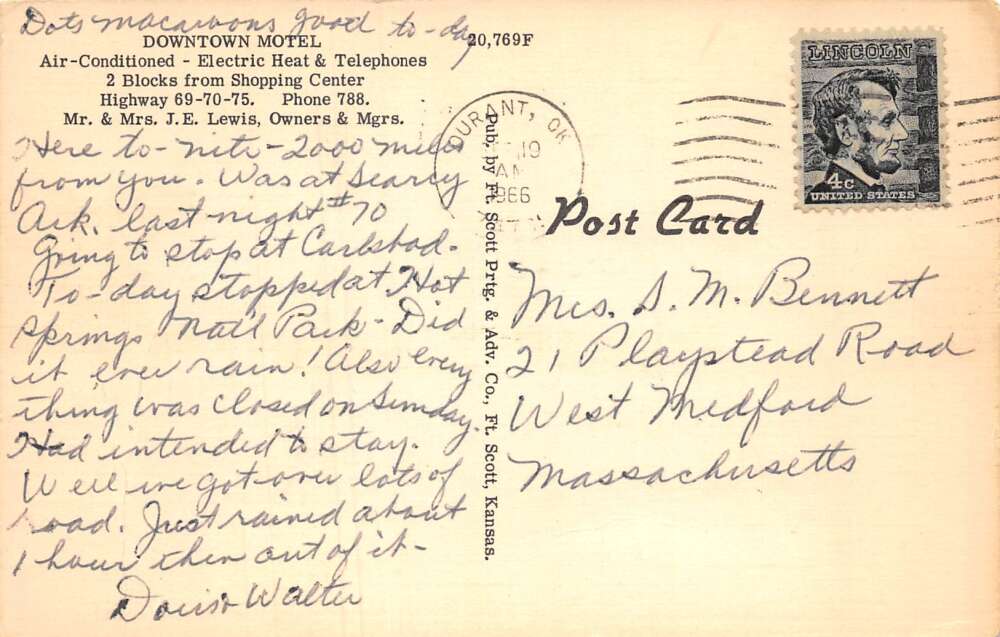 Dots macaroons good to-day
DOWNTOWN MOTEL
20,769F
Air-Conditioned - Electric Heat & Telephones
2 Blocks from Shopping Center
Highway 69-70-75. Phone 788.
Mr. & Mrs. J.E. Lewis, Owners & Mgrs.
Here to-nite-2000 miles
from you. Was at Searcy
Ark. last night #70
Going to stop at Carlsbad.
To-day stopped at Hot
Springs Nat'l Park-Did
it ever rain! Also every
thing was closed on Sunday.
Had intended to stay.
Well we got over lots of
road. Just rained about
1 hour then out of it-
Walter
Pub. by Ft. Scott Prtg. & Adv. Co., Ft. Scott, Kansas.
DURANT, OK
19
AM
1966
LINCOLN
4c
UNITED STATES
Post Card
Mrs. S. M. Bennett
21 Playstead Road
West Medford
Massachusetts